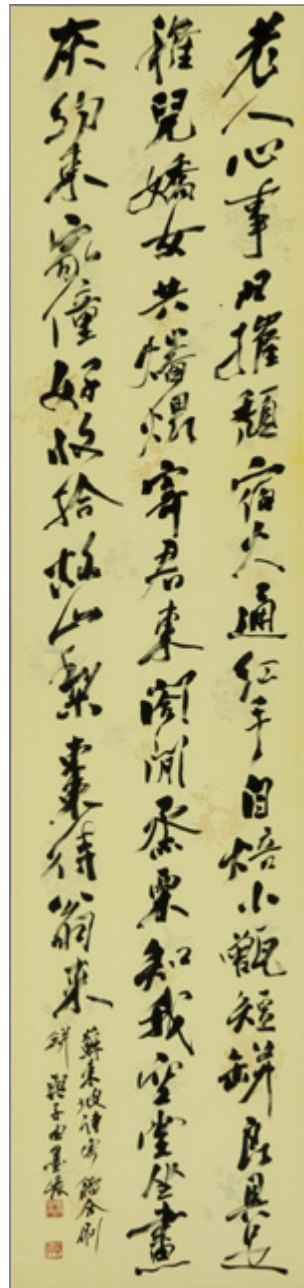 老人心事日摧頹宿火通紅手自焙小甑短缾良具足
稚兒嬌女共燔煨寄君東閣閒烝栗知我空堂坐畫
灰約束家僮好收拾故山梨棗待翁來
蘇東坡詩寄餾合刷
缾與子由